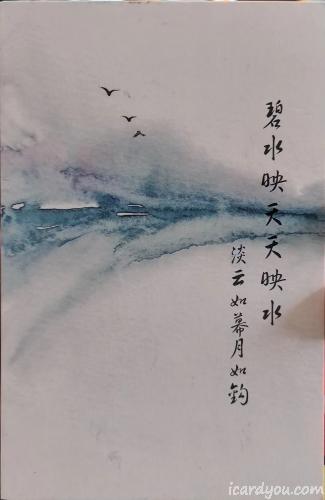 碧水映天天映水
淡云如幕月如鈎
icardyou.com